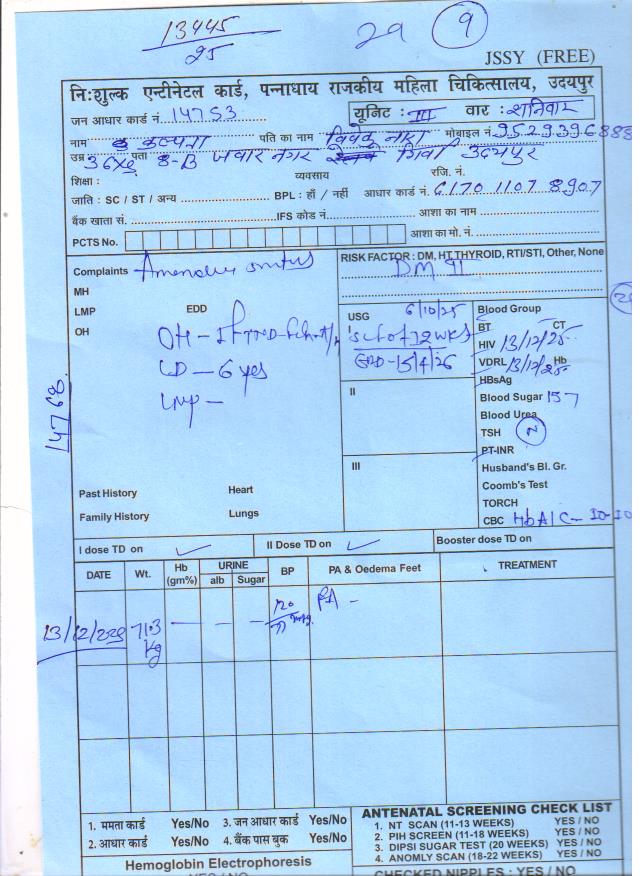 13445
25
29
9
JSSY (FREE)
नि:शुल्क एन्टीनेटल कार्ड, पन्नाधाय राजकीय महिला चिकित्सालय, उदयपुर
जन आधार कार्ड नं. 14753 यूनिट : III वार : शनिवार
नाम कल्पना पति का नाम मोबाइल नं. 9529396888
उम्र 36 पता 8-B जवार नगर उदयपुर
शिक्षा : व्यवसाय रजि. नं.
जाति : SC / ST / अन्य BPL: हाँ / नहीं आधार कार्ड नं. 6170 1107 8907
बैंक खाता सं. IFS कोड नं. आशा का नाम
PCTS No. आशा का मो. नं.
Complaints RISK FACTOR : DM, HT,THYROID, RTI/STI, Other, None
DM
MH
LMP EDD
OH
OH -
LD - 6 yes
LMP -
14768
USG 6/10/25
I
EDD - 15/4/26
II
III
Blood Group
BT CT
HIV 13/12/25
VDRL 13/12/25 Hb
HBsAg
Blood Sugar 157
Blood Urea
TSH N
PT-INR
Husband's Bl. Gr.
Coomb's Test
TORCH
CBC HbA1C - 10.10
Past History Heart
Family History Lungs
I dose TD on ✓ II Dose TD on ✓ Booster dose TD on
DATE Wt. Hb (gm%) URINE alb Sugar BP PA & Oedema Feet TREATMENT
13/12/2025 71.3 kg — — — 120 PA -
1. ममता कार्ड Yes/No 3. जन आधार कार्ड Yes/No
2. आधार कार्ड Yes/No 4. बैंक पास बुक Yes/No
Hemoglobin Electrophoresis
YES / NO
ANTENATAL SCREENING CHECK LIST
1. NT SCAN (11-13 WEEKS) YES / NO
2. PIH SCREEN (11-18 WEEKS) YES / NO
3. DIPSI SUGAR TEST (20 WEEKS) YES / NO
4. ANOMLY SCAN (18-22 WEEKS) YES / NO
CHECKED NIPPLES : YES / NO